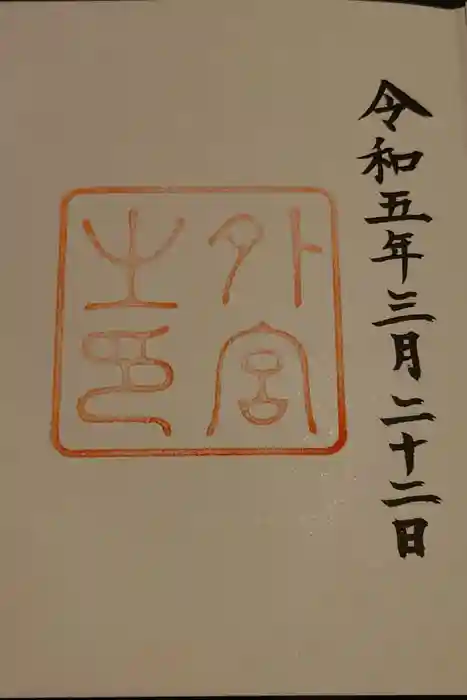 令和五年三月二十二日
外宮
之印